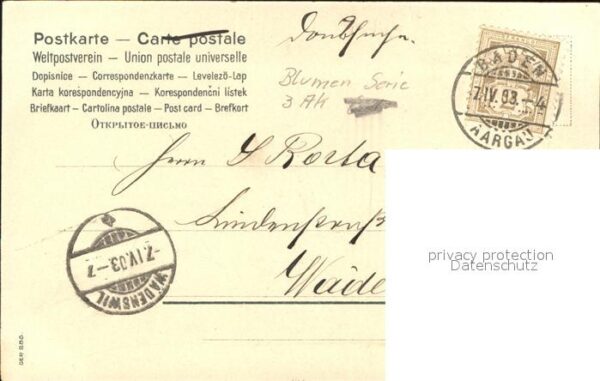 Postkarte — Carte postale
Weltpostverein — Union postale universelle
Dopisnice — Correspondenzkarte — Levelező-Lap
Karta korespondencyjna — Korespondenční lístek
Briefkaart — Cartolina postale — Post card — Brefkort
Открытое-письмо
Drucksache.
Blumen Serie
3 AK
BADEN
7.IV.03.–4
AARGAU
Herrn
Lindenstraß
Wäde
-7.IV.03.-7
WÄDENSWIL
privacy protection
Datenschutz